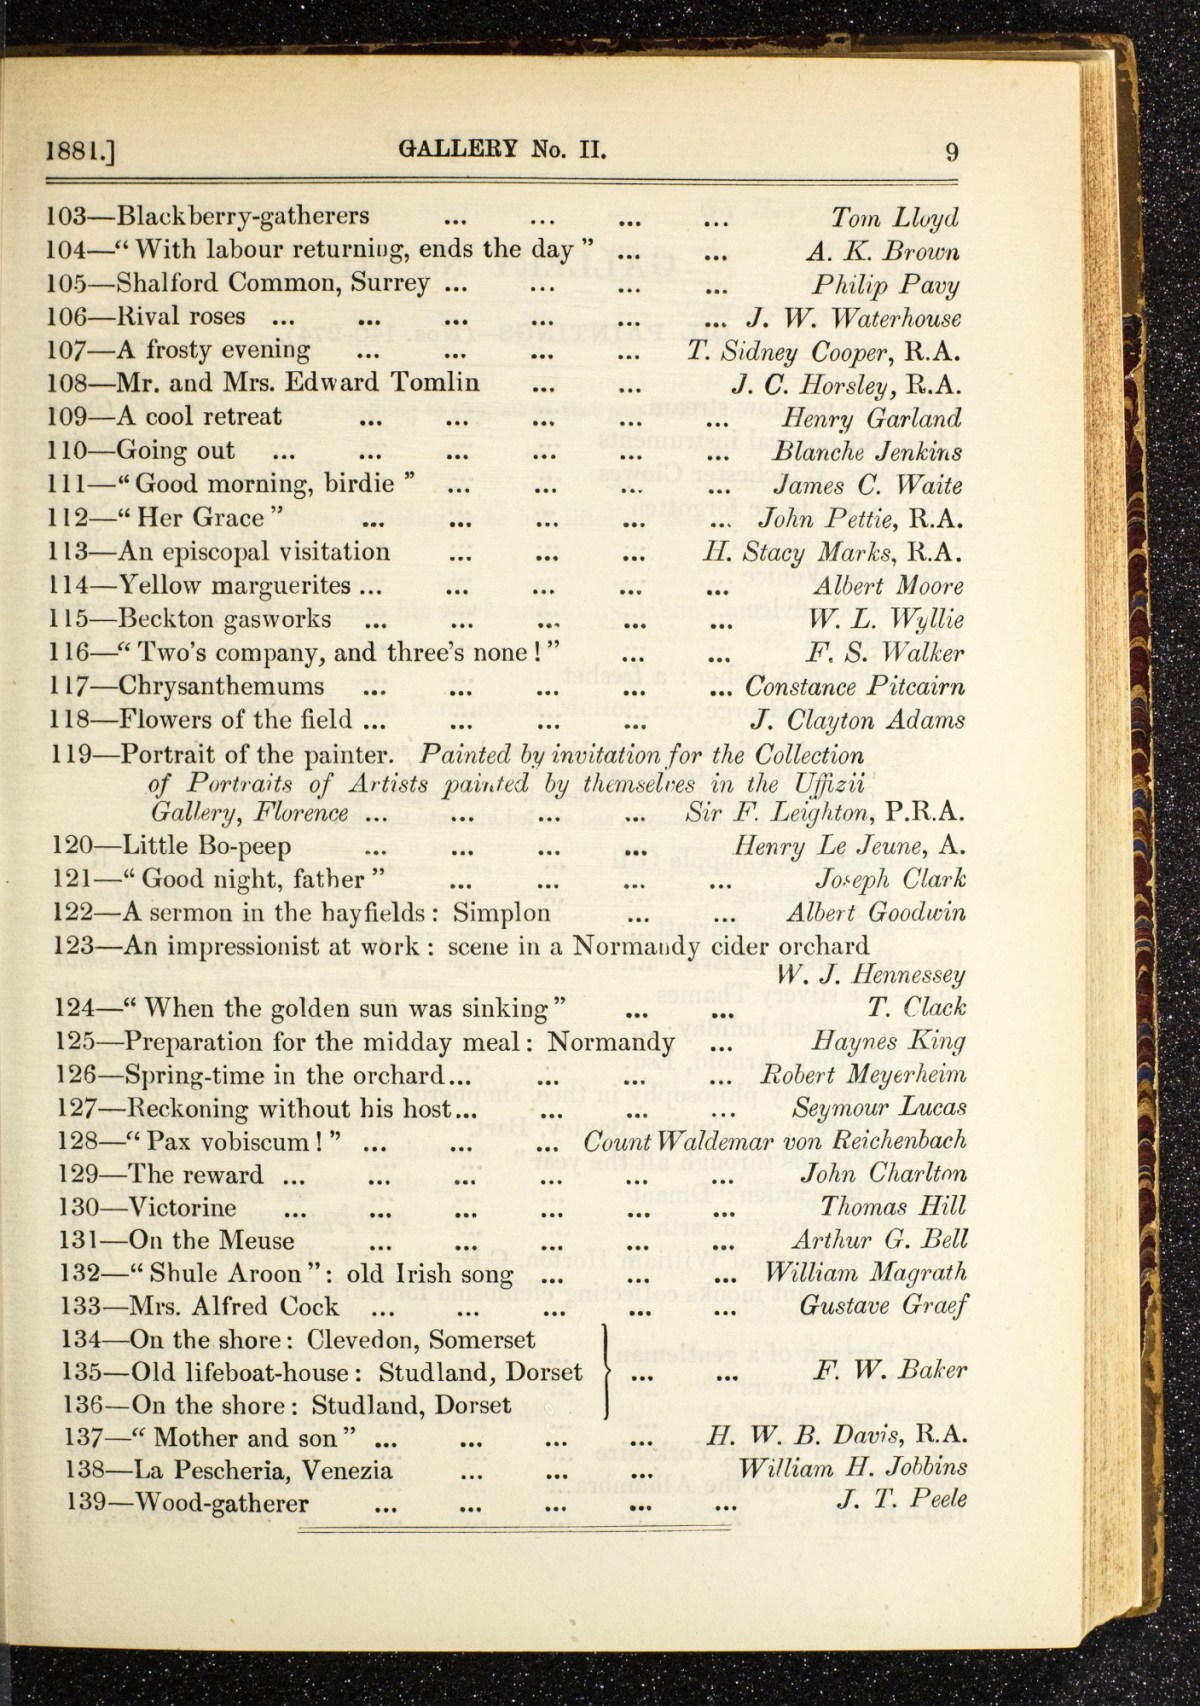 1881.] GALLERY No. II. 9
103—Blackberry-gatherers ... ... ... ... Tom Lloyd
104—“With labour returning, ends the day” ... ... A. K. Brown
105—Shalford Common, Surrey ... ... ... ... Philip Pavy
106—Rival roses ... ... ... ... ... ... J. W. Waterhouse
107—A frosty evening ... ... ... ... T. Sidney Cooper, R.A.
108—Mr. and Mrs. Edward Tomlin ... ... J. C. Horsley, R.A.
109—A cool retreat ... ... ... ... ... Henry Garland
110—Going out ... ... ... ... ... ... Blanche Jenkins
111—“Good morning, birdie” ... ... ... ... James C. Waite
112—“Her Grace” ... ... ... ... ... John Pettie, R.A.
113—An episcopal visitation ... ... ... H. Stacy Marks, R.A.
114—Yellow marguerites ... ... ... ... ... Albert Moore
115—Beckton gasworks ... ... ... ... ... W. L. Wyllie
116—“Two’s company, and three’s none!” ... ... F. S. Walker
117—Chrysanthemums ... ... ... ... ... Constance Pitcairn
118—Flowers of the field ... ... ... ... J. Clayton Adams
119—Portrait of the painter. Painted by invitation for the Collection
of Portraits of Artists painted by themselves in the Uffizii
Gallery, Florence ... ... ... ... Sir F. Leighton, P.R.A.
120—Little Bo-peep ... ... ... ... Henry Le Jeune, A.
121—“Good night, father” ... ... ... ... Joseph Clark
122—A sermon in the hayfields: Simplon ... ... Albert Goodwin
123—An impressionist at work: scene in a Normandy cider orchard
W. J. Hennessey
124—“When the golden sun was sinking” ... ... T. Clack
125—Preparation for the midday meal: Normandy ... Haynes King
126—Spring-time in the orchard... ... ... ... Robert Meyerheim
127—Reckoning without his host... ... ... ... Seymour Lucas
128—“Pax vobiscum!” ... ... ... Count Waldemar von Reichenbach
129—The reward ... ... ... ... ... ... John Charlton
130—Victorine ... ... ... ... ... ... Thomas Hill
131—On the Meuse ... ... ... ... ... Arthur G. Bell
132—“Shule Aroon”: old Irish song ... ... ... William Magrath
133—Mrs. Alfred Cock ... ... ... ... ... Gustave Graef
134—On the shore: Clevedon, Somerset
135—Old lifeboat-house: Studland, Dorset } ... ... F. W. Baker
136—On the shore: Studland, Dorset
137—“Mother and son” ... ... ... ... H. W. B. Davis, R.A.
138—La Pescheria, Venezia ... ... ... William H. Jobbins
139—Wood-gatherer ... ... ... ... ... J. T. Peele